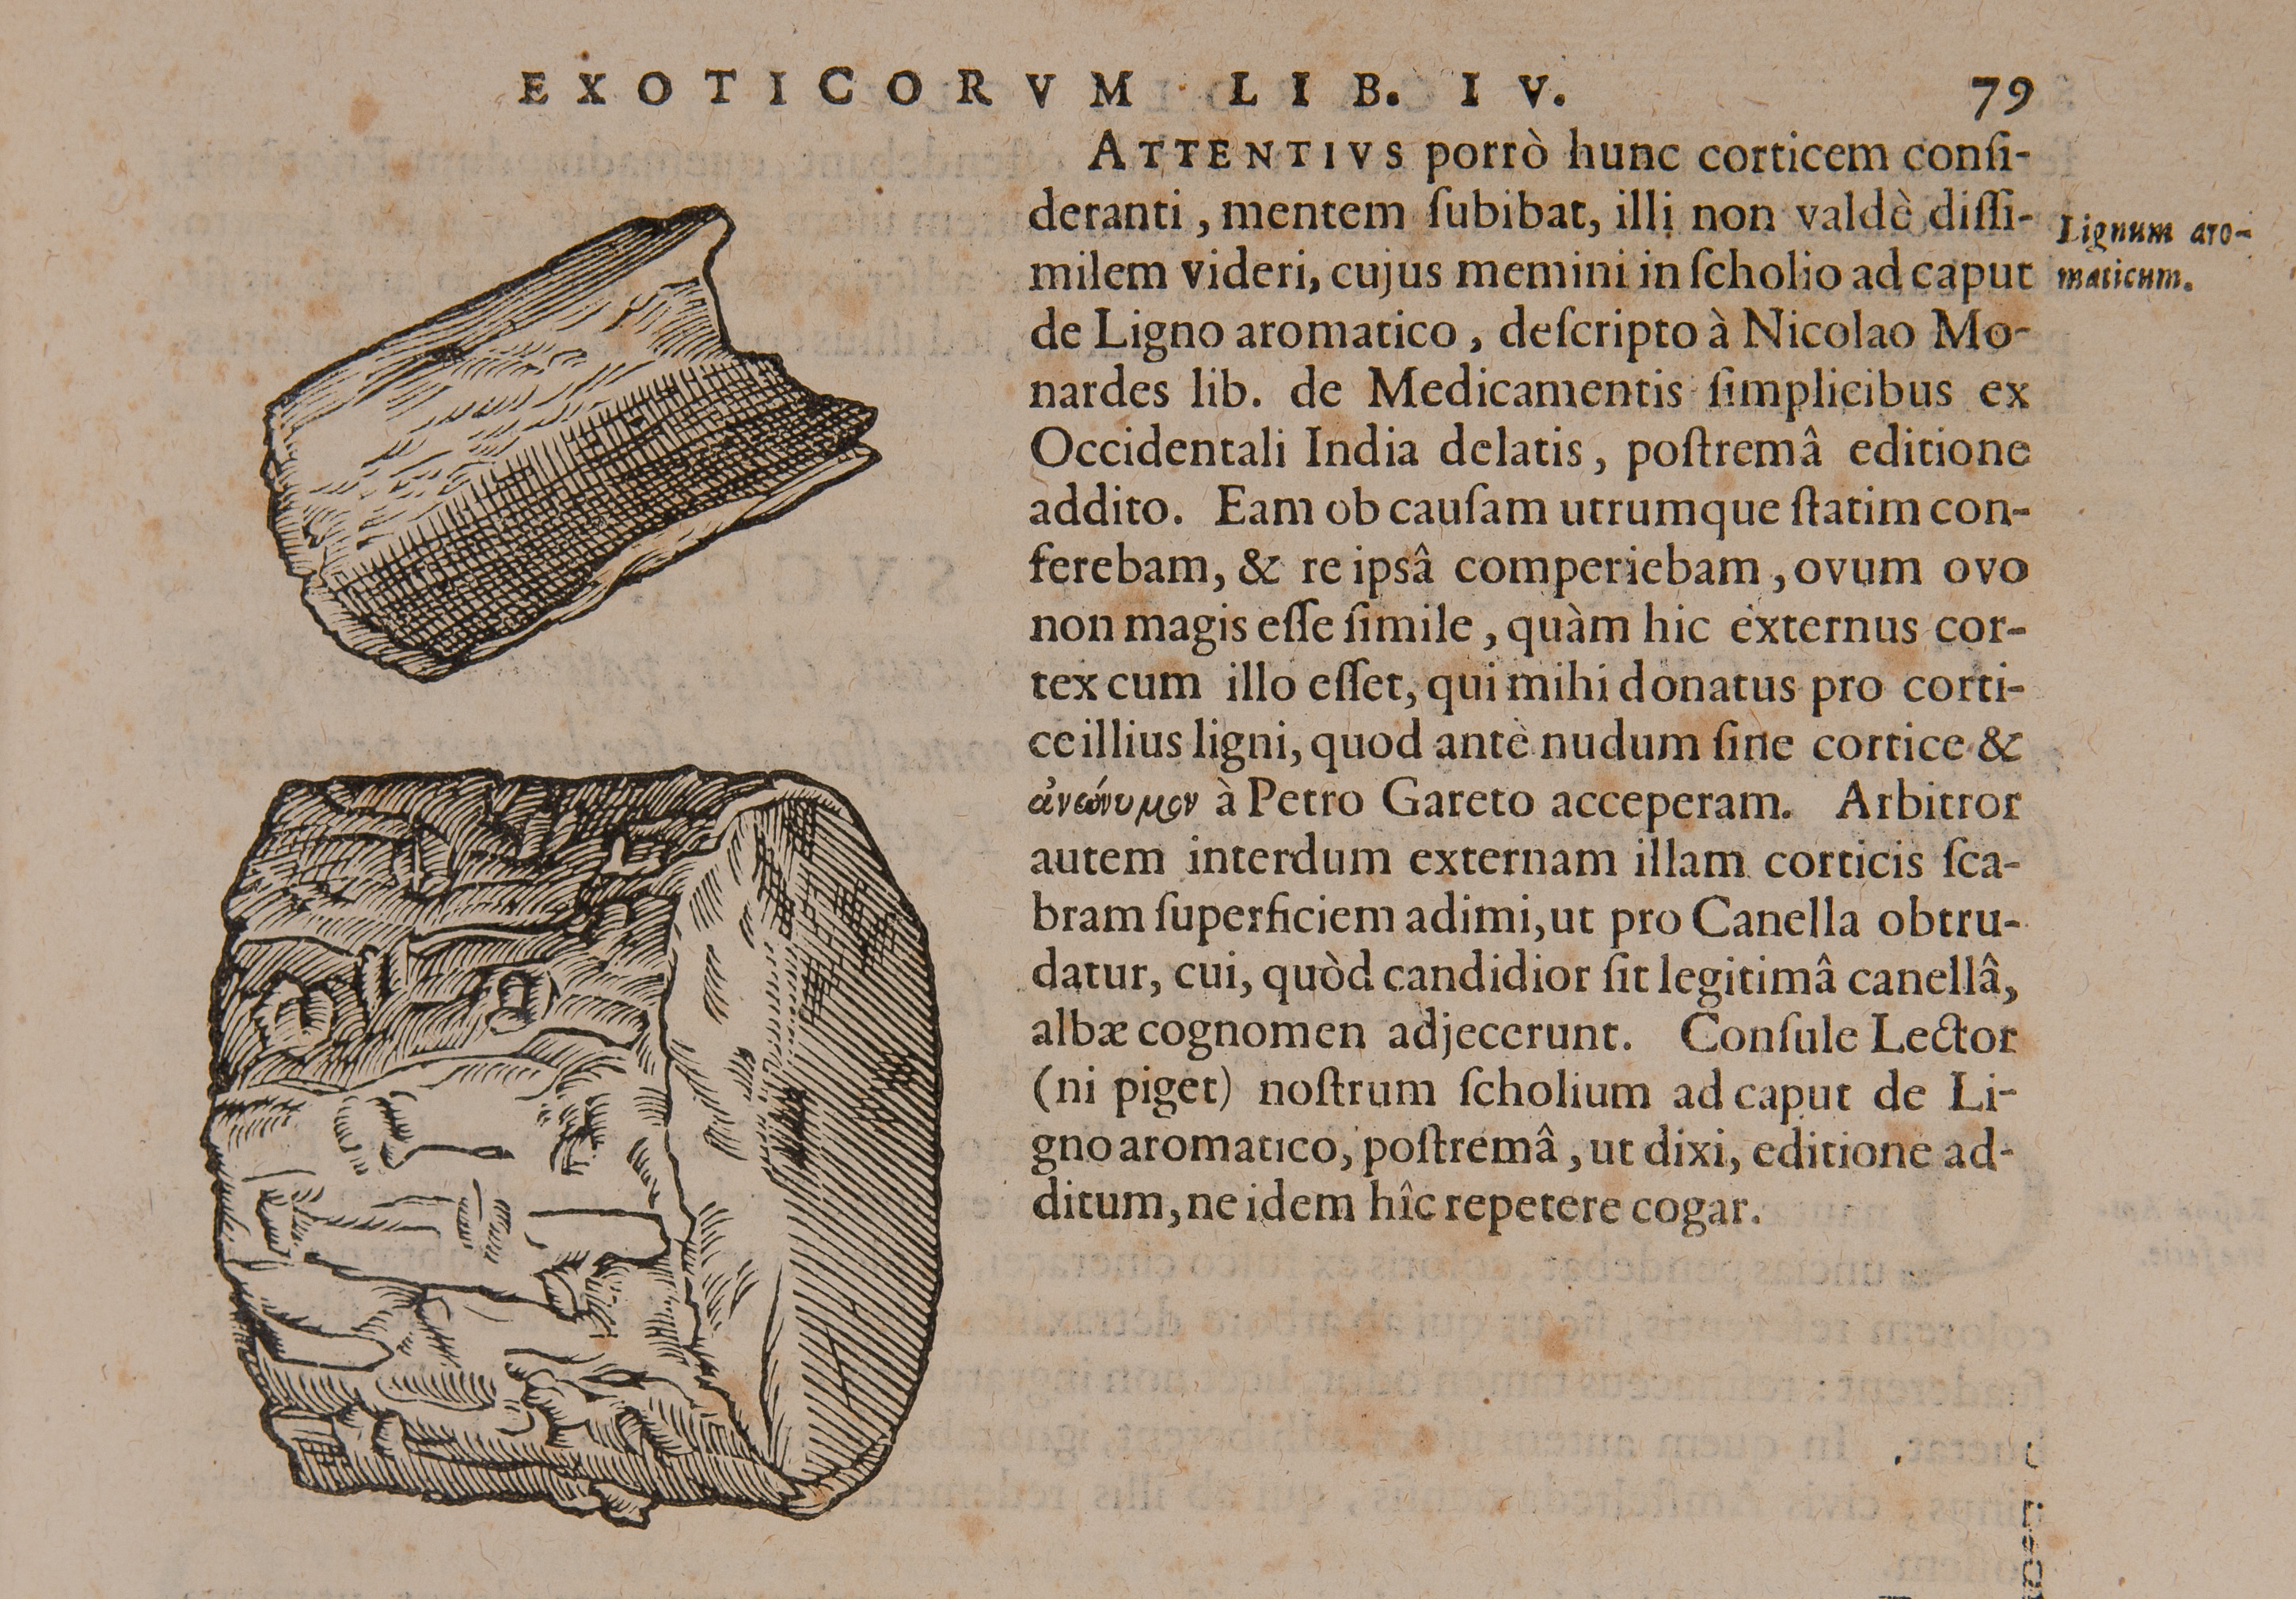 EXOTICORVM LIB. IV. 79
ATTENTIVS porrò hunc corticem conſi-
deranti, mentem ſubibat, illi non valdè diſſi-
milem videri, cujus memini in ſcholio ad caput
de Ligno aromatico, deſcripto à Nicolao Mo-
nardes lib. de Medicamentis ſimplicibus ex
Occidentali India delatis, poſtremâ editione
addito. Eam ob cauſam utrumque ſtatim con-
ferebam, & re ipsâ comperiebam, ovum ovo
non magis eſſe ſimile, quàm hic externus cor-
tex cum illo eſſet, qui mihi donatus pro corti-
ce illius ligni, quod antè nudum ſine cortice &
ἀνώνυμον à Petro Gareto acceperam. Arbitror
autem interdum externam illam corticis ſca-
bram ſuperficiem adimi, ut pro Canella obtru-
datur, cui, quòd candidior ſit legitimâ canellâ,
albæ cognomen adjecerunt. Conſule Lector
(ni piget) noſtrum ſcholium ad caput de Li-
gno aromatico, poſtremâ, ut dixi, editione ad-
ditum, ne idem hîc repetere cogar.
Lignum aro-
maticum.